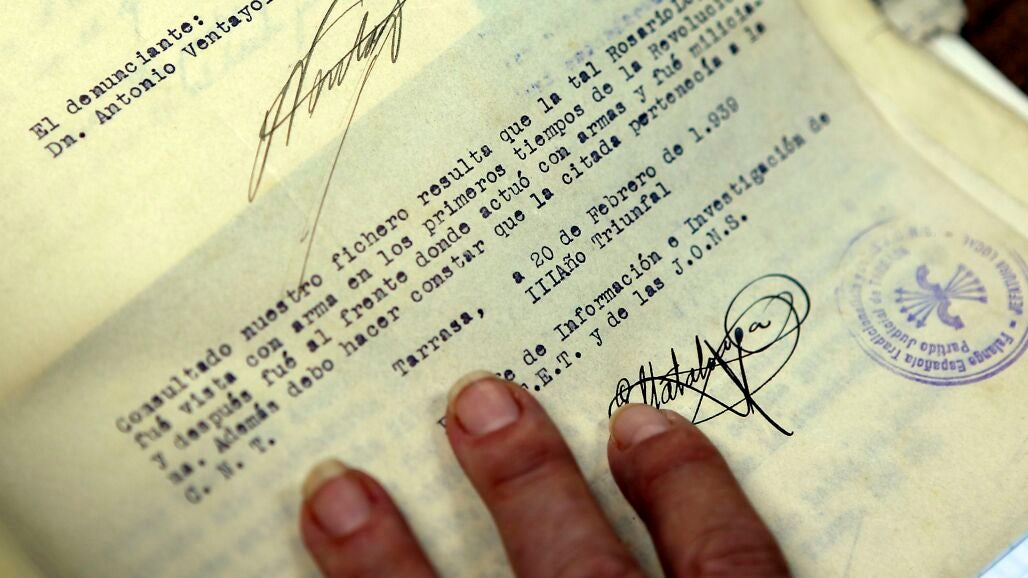 El denunciante:
Dn. Antonio Ventayol
Consultado nuestro fichero resulta que la tal Rosario
fué vista con arma en los primeros tiempos de la Revolución
y después fué al frente donde actuó con armas y fué milicia
na. Además debo hacer constar que la citada pertenecía a la
C. N. T.
Tarrasa, a 20 de Febrero de 1.939
IIIAño Triunfal
de Información e Investigación de
.E.T. y de las J.O.N.S.
Matalonga
Falange Española Tradicionalista
Partido Judicial de
JEFATURA LOCAL